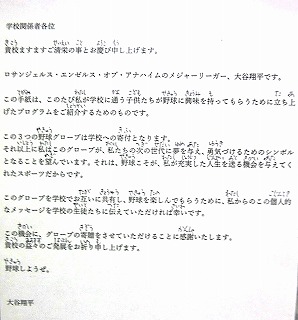 学校関係者各位
貴校ますますご清栄の事とお慶び申し上げます。
ロサンジェルス・エンゼルス・オブ・アナハイムのメジャーリーガー、大谷翔平です。
この手紙は、このたび私が学校に通う子供たちが野球に興味を持ってもらうために立ち上
げたプログラムをご紹介するためのものです。
この3つの野球グローブは学校への寄付となります。
それ以上に私はこのグローブが、私たちの次の世代に夢を与え、勇気づけるためのシンボル
となることを望んでいます。それは、野球こそが、私が充実した人生を送る機会を与えてく
れたスポーツだからです。
このグローブを学校でお互いに共有し、野球を楽しんでもらうために、私からのこの個人的
なメッセージを学校の生徒たちに伝えていただければ幸いです。
この機会に、グローブの寄贈をさせていただけることに感謝いたします。
貴校の益々のご発展をお祈り申し上げます。
野球しようぜ。
大谷翔平